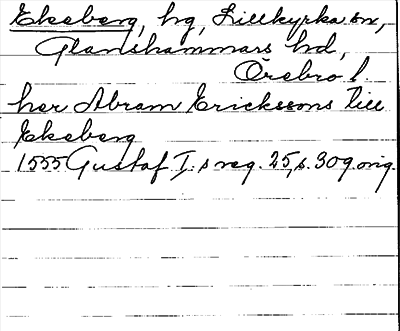 Ekeberg, hg, Lillkyrka sn,
Glanshammars hd,
Örebro l.
her Abram Erickssons till
Ekeberg
1555 Gustaf I:s reg. 25, s. 309. orig.